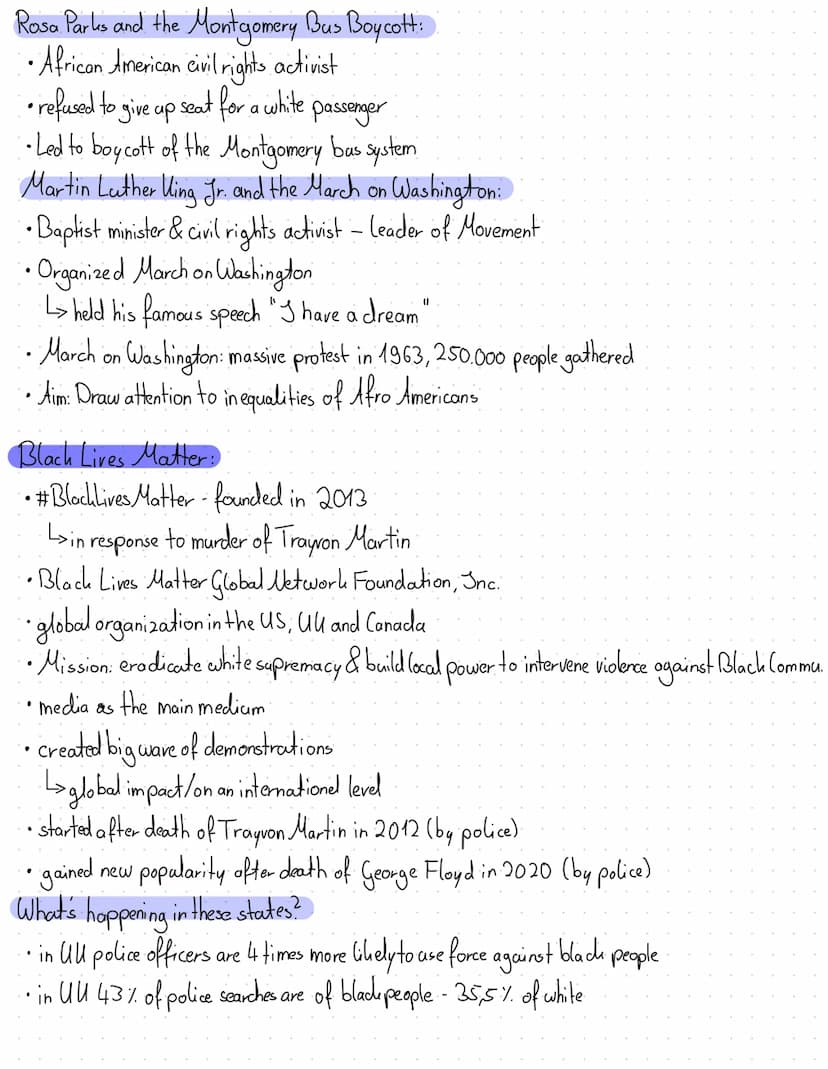 Rosa Parks and the Montgomery Bus Boycott:
• African American civil rights activist
• refused to give up seat for a white passenger
• Led to boycott of the Montgomery bus system
Martin Luther King Jr. and the March on Washington:
• Baptist minister & civil rights activist – Leader of Movement
• Organized March on Washington
↳ held his famous speech "I have a dream"
• March on Washington: massive protest in 1963, 250.000 people gathered
• Aim: Draw attention to inequalities of Afro Americans
Black Lives Matter:
• #BlackLivesMatter - founded in 2013
↳ in response to murder of Trayvon Martin
• Black Lives Matter Global Network Foundation, Inc.
• global organization in the US, UK and Canada
• Mission: eradicate white supremacy & build local power to intervene violence against Black Commu.
• media as the main medium
• created big wave of demonstrations
↳ global impact/on an internationel level
• started after death of Trayvon Martin in 2012 (by police)
• gained new popularity after death of George Floyd in 2020 (by police)
What's happening in these states?
• in UK police officers are 4 times more likely to use force against black people
• in UK 43% of police searches are of black people - 35,5% of white